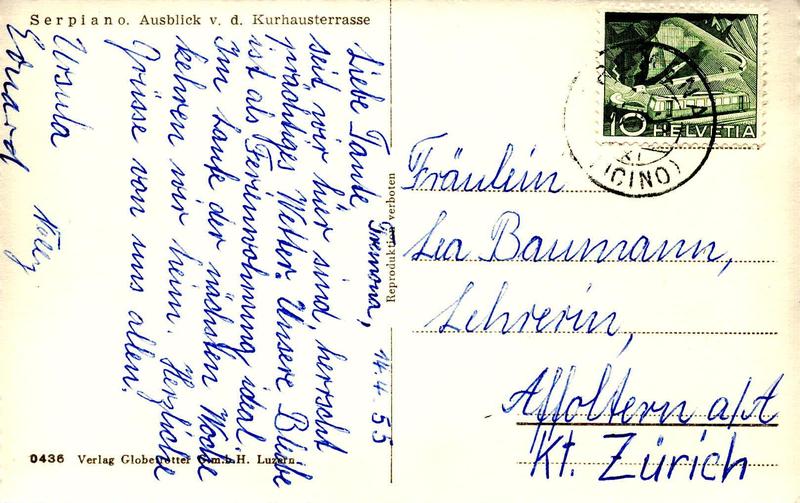 Serpiano. Ausblick v. d. Kurhausterrasse
Tremona, 14.4.55
Liebe Tante,
seid wir hier sind, herrscht
prächtiges Wetter. Unsere Bleibe
ist als Ferienwohnung ideal.
Im Laufe der nächsten Woche
kehren wir heim. Herzliche
Grüsse von uns allen.
Ursula
Eduard
Nelly
0436 Verlag Globetrotter G.m.b.H. Luzern
Reproduktion verboten
10 HELVETIA
(TICINO)
Fräulein
Lea Baumann,
Lehrerin,
Affoltern a/A
Kt. Zürich